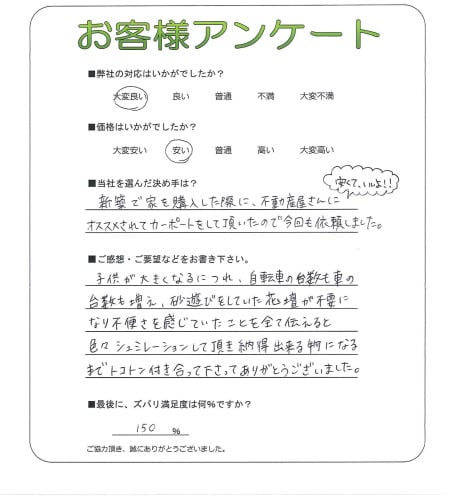 お客様アンケート
■弊社の対応はいかがでしたか？
大変良い 良い 普通 不満 大変不満
■価格はいかがでしたか？
大変安い 安い 普通 高い 大変高い
■当社を選んだ決め手は？
安くて、いいよ!!
新築で家を購入した際に、不動産屋さんに
オススメされてカーポートをして頂いたので今回も依頼しました。
■ご感想・ご要望などをお書き下さい。
子供が大きくなるにつれ、自転車の台数も車の
台数も増え、砂遊びをしていた花壇が不要に
なり不便さを感じていたことを全て伝えると
色々シュミレーションして頂き納得出来る物になる
までトコトン付き合って下さってありがとうございました。
■最後に、ズバリ満足度は何%ですか？
150 %
ご協力頂き、誠にありがとうございました。